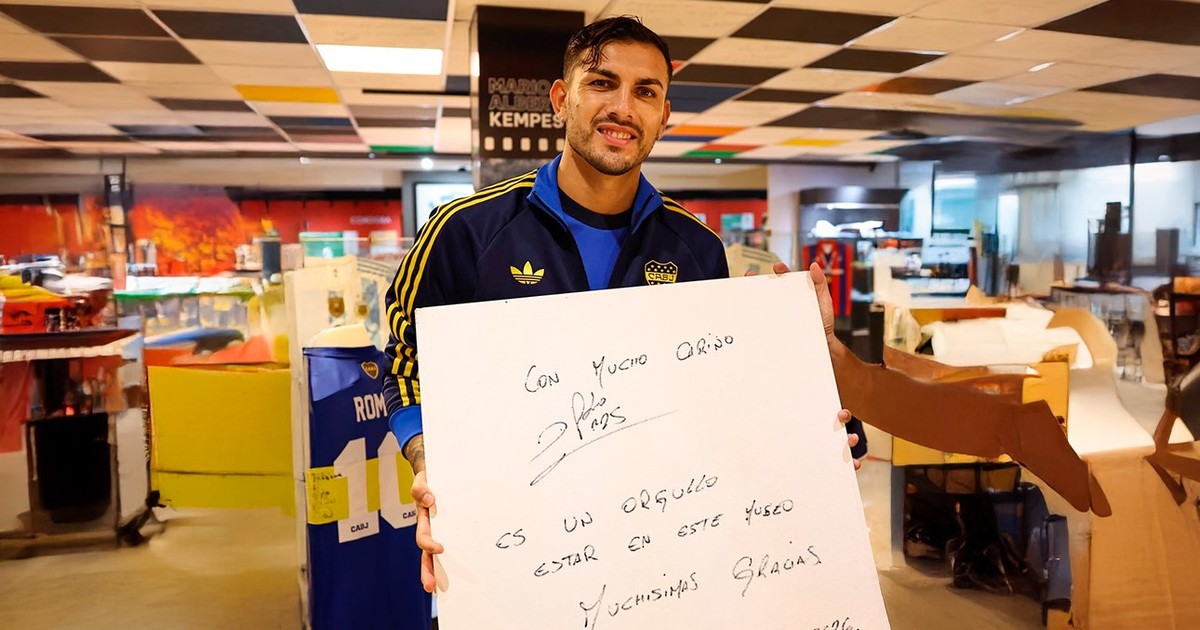 MARIO
ALBERTO
KEMPES
CABJ
CON MUCHO CARIÑO
ES UN ORGULLO
ESTAR EN ESTE MUSEO
MUCHISIMAS GRACIAS
ROM
10
CABJ